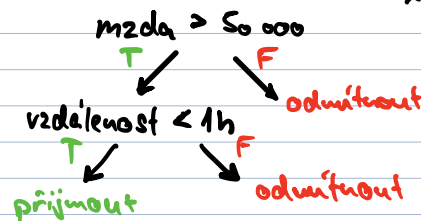 mzda > 50 000
T F
odmítnout
vzdálenost < 1h
T F
přijmout
odmítnout